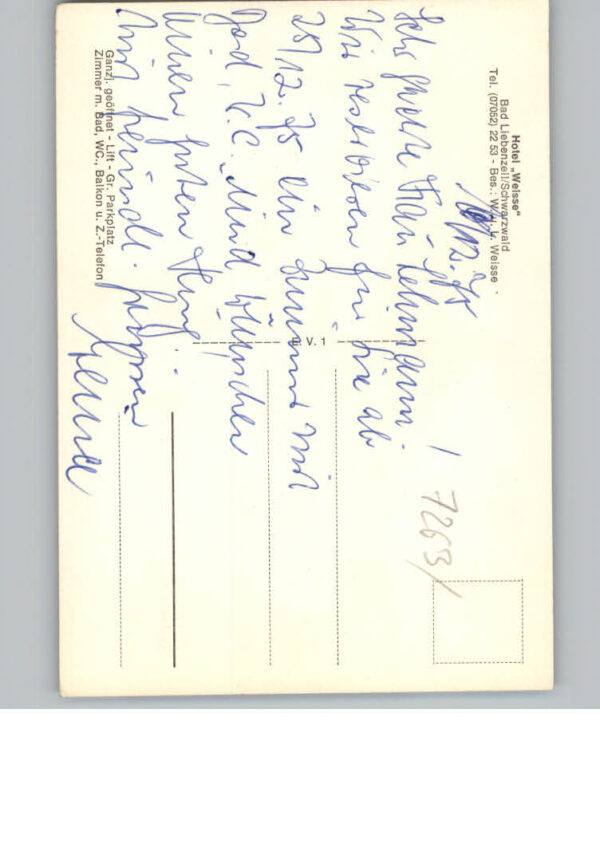 Hotel „Weisse“
Bad Liebenzell/Schwarzwald
Tel. (07052) 22 53 - Bes.: W. u. L. Weisse
12. 75
Sehr geehrte Frau Lehmann!
Wir reservieren für Sie ab
25/12. 75 ein Zimmer mit
Bad, W.C. und wünschen
Ihnen guten
Mit freundl. Grüssen
Weisse
Ganzj. geöffnet - Lift - Gr. Parkplatz
Zimmer m. Bad, WC., Balkon u. Z.-Telefon
V. 1
7263/